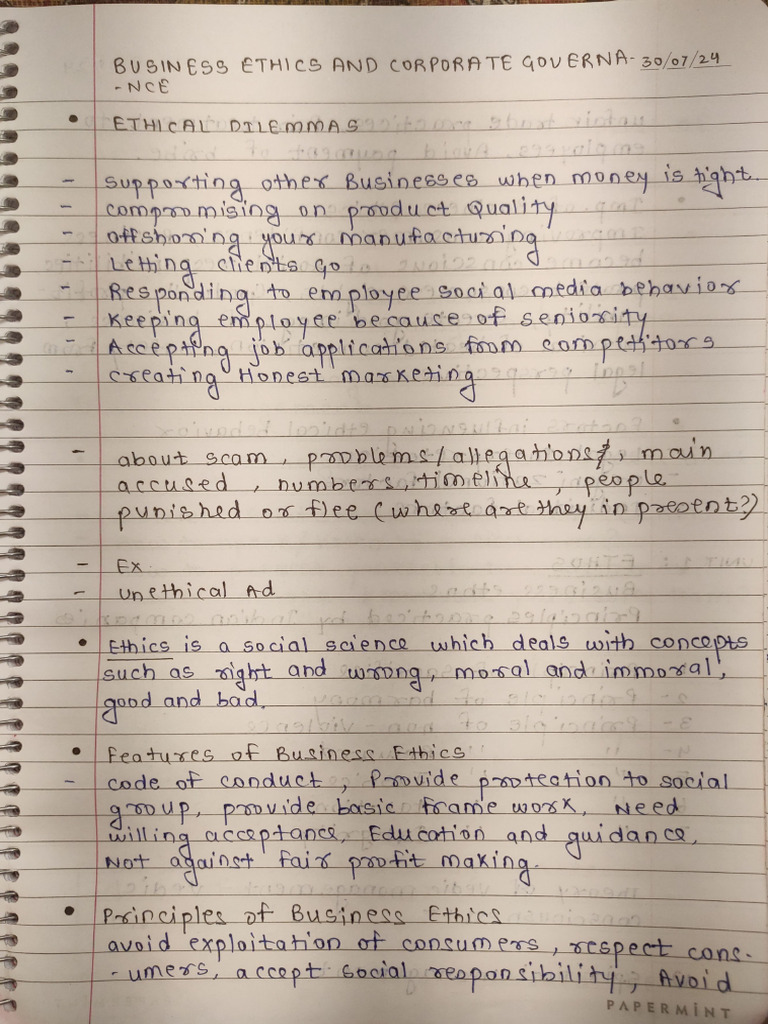 BUSINESS ETHICS AND CORPORATE GOVERNA- 30/07/24
-NCE
• ETHICAL DILEMMAS
- supporting other Businesses when money is tight.
- compromising on product Quality
- offshoring your manufacturing
- Letting clients Go
- Responding to employee social media behavior
- Keeping employee because of seniority
- Accepting job applications from competitors
- creating Honest marketing
- about scam, problems/allegations, main
accused, numbers, timeline, people
punished or flee (where are they in present?)
- Ex.
- unethical Ad
• Ethics is a social science which deals with concepts
such as right and wrong, moral and immoral,
good and bad.
• Features of Business Ethics
- code of conduct, Provide protection to social
group, provide basic frame work, Need
willing acceptance, Education and guidance,
Not against fair profit making.
• Principles of Business Ethics
avoid exploitation of consumers, respect cons-
-umers, accept social responsibility, Avoid
PAPERMINT